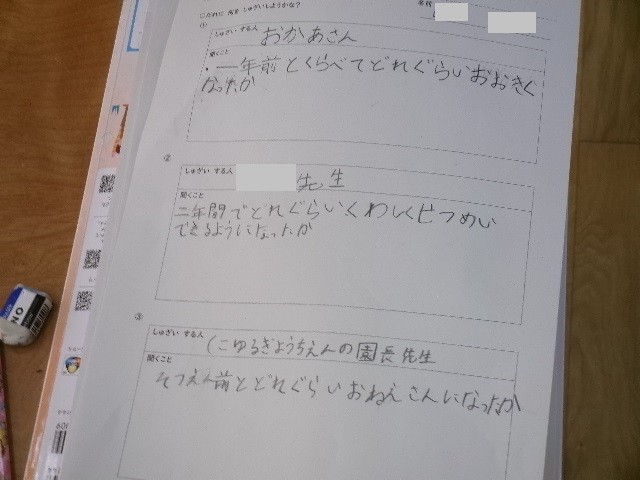 □だれに 何を しゅざいしようかな?
名前
①
しゅざい する人 おかあさん
聞くこと
・一年前とくらべてどれぐらいおおきく
なったか
②
しゅざい する人 先生
聞くこと
二年間でどれぐらいくわしくせつめい
できるようになったか
③
しゅざい する人 (こゆるぎようちえんの園長先生
聞くこと
そつえん前とどれぐらいおねえさんになったか